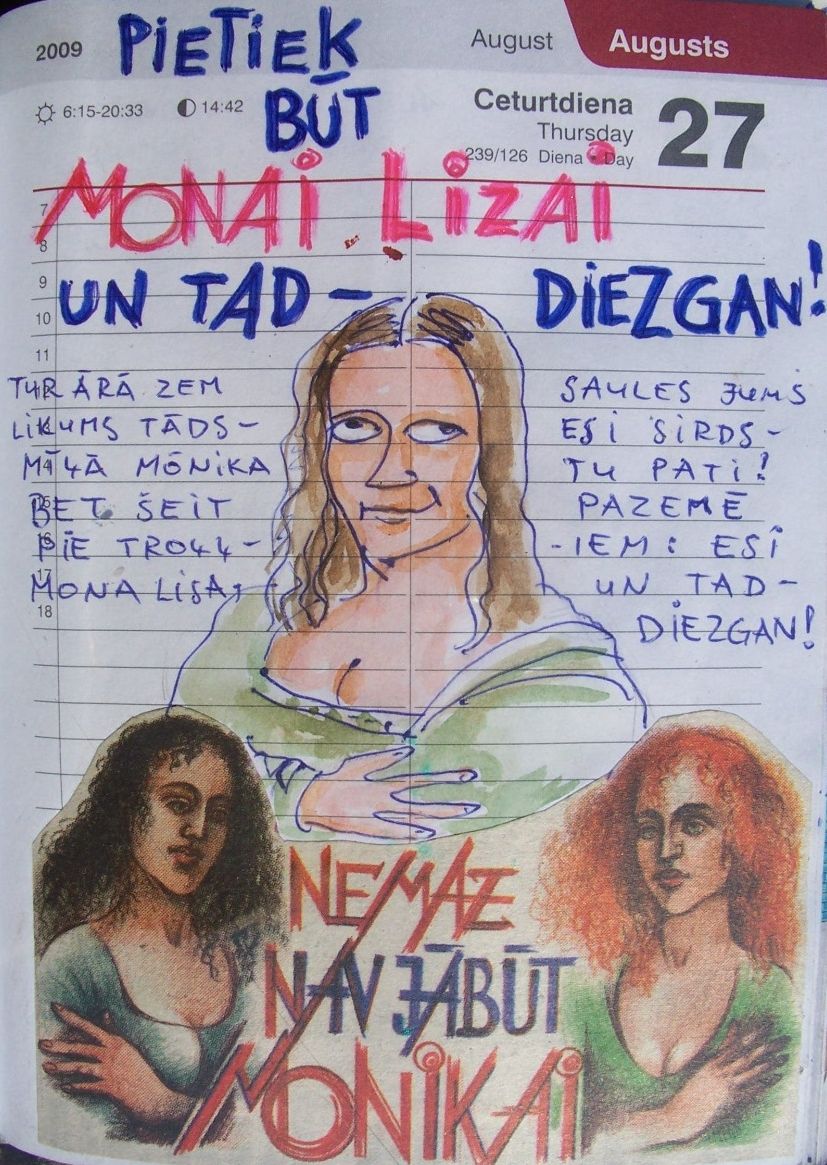 2009 PIETIEK August Augusts
☼ 6:15-20:33 ◐ 14:42 BŪT Ceturtdiena 27
Thursday
239/126 Diena • Day
MONAI LIZAI
7
8
9
UN TAD – DIEZGAN!
10
11
TUR ĀRĀ ZEM SAULES JUMS
LIKUMS TĀDS – ESI SIRDS –
MĪĻĀ MŌNIKA TU PATI!
14
BET ŠEIT PAZEMĒ
PIE TROLL– -IEM: ESI
16
17
MONA LISA, UN TAD –
18
DIEZGAN!
NEMAZ
NAV JĀBŪT
MONIKAI